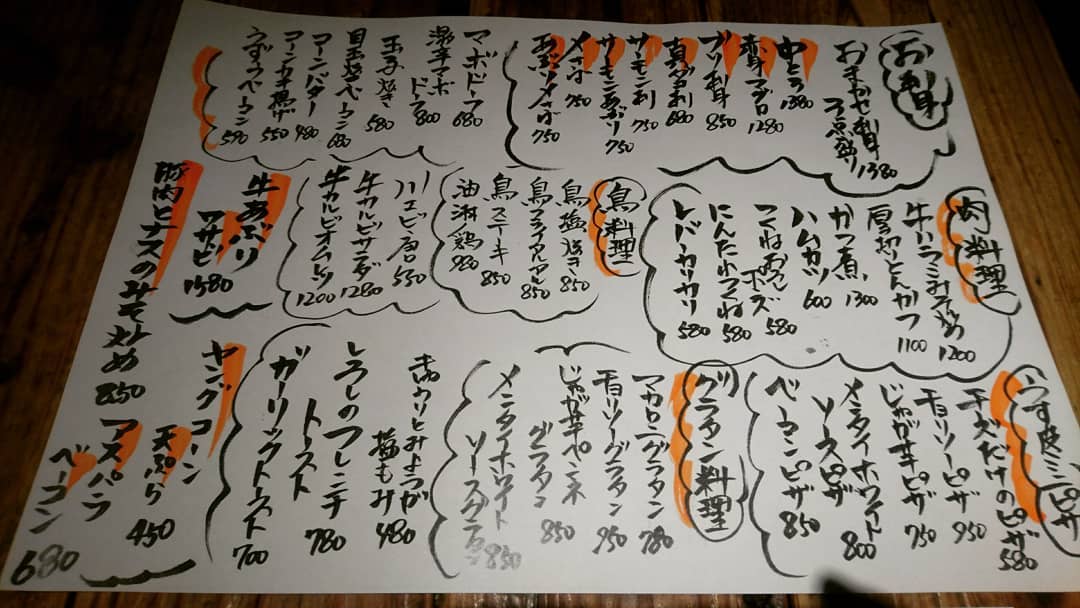 お刺身
おまかせ刺身
3点盛り 1380
中とろ 1380
赤身マグロ 1280
ブリ刺身 850
真ダコ刺 680
サーモン刺 750
サーモンあぶり 750
〆さば 750
あぶり〆さば 750
マーボドーフ 680
激辛マーボ
ドーフ 800
玉子焼き 580
目玉焼ベーコン 680
コーンバター 480
コーンかき揚げ 550
うずらベーコン 570
肉料理
牛ハラミみそ焼 1200
厚切りとんかつ 1100
かつ煮 1300
ハムカツ 600
つくねおろし
ポンズ 580
にんたれつくね 580
レバーカリカリ 580
鳥料理
鳥塩焼き 850
鳥ステーキ 850
油淋鶏 980
川エビ唐 550
牛カルビサラダ 1280
牛カルビオムレツ 1200
牛あぶり
ワサビ 1580
豚肉とナスのみそ炒め 850
うす皮ミニピザ
チーズだけのピザ 580
チョリソーピザ 950
じゃが芋ピザ 750
メンタイホワイト
ソースピザ 800
ベーコンピザ 850
グラタン料理
マカロニグラタン 780
チョリソーグラタン 950
じゃが芋ペンネ
グラタン 850
メンタイホワイト
ソースグラタン 850
きゅうりとみょうが
塩もみ 480
しろしのフレンチ
トースト 780
ガーリックトースト 700
ヤングコーン
天ぷら 450
アスパラ
ベーコン 680